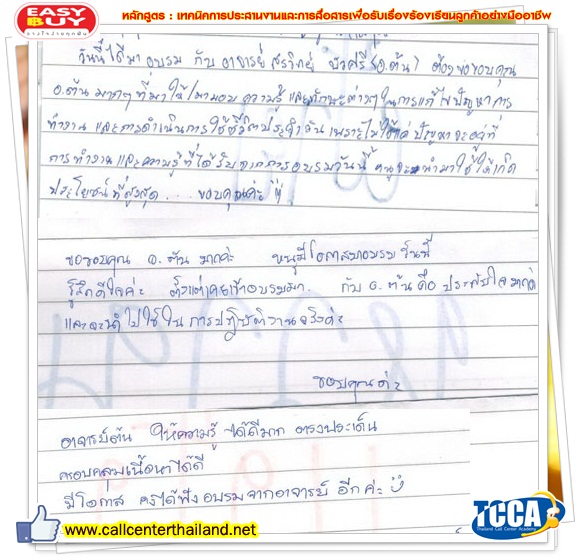 EASY BUY
หลักสูตร : เทคนิคการประสานงานและการสื่อสารเพื่อรับเรื่องร้องเรียนลูกค้าอย่างมืออาชีพ
วันนี้ได้มาอบรม กับ อาจารย์ สรวิทย์ (อ.ต้น) ต้องขอขอบคุณ
อ.ต้น มากๆที่มาให้ ความรู้ และทักษะต่างๆ ในการแก้ไขปัญหาการ
ทำงาน และการดำเนินการใช้ชีวิตประจำวัน เพราะไม่ใช่แค่ ปัญหาจะอยู่ที่
การทำงาน และความรู้ที่ได้รับจากการอบรมวันนี้ หนูจะนำมาใช้ให้เกิด
ประโยชน์ที่สูงสุด.... ขอบคุณค่ะ
ขอขอบคุณ อ.ต้น มากค่ะ หนูมีโอกาสมาอบรมวันนี้
รู้สึกดีใจค่ะ ตั้งแต่เคยเข้าอบรมมา. กับ อ.ต้นคือ ประทับใจมากค่ะ
และจะนำไปใช้ในการปฏิบัติงานจริงค่ะ
ขอบคุณค่ะ
อาจารย์ต้น ให้ความรู้ ได้ดีมาก ตรงประเด็น
ครอบคลุมเนื้อหาได้ดี
มีโอกาส คงได้ฟังอบรมจากอาจารย์ อีกค่ะ
www.callcenterthailand.net
TCCA
Thailand Call Center Academy